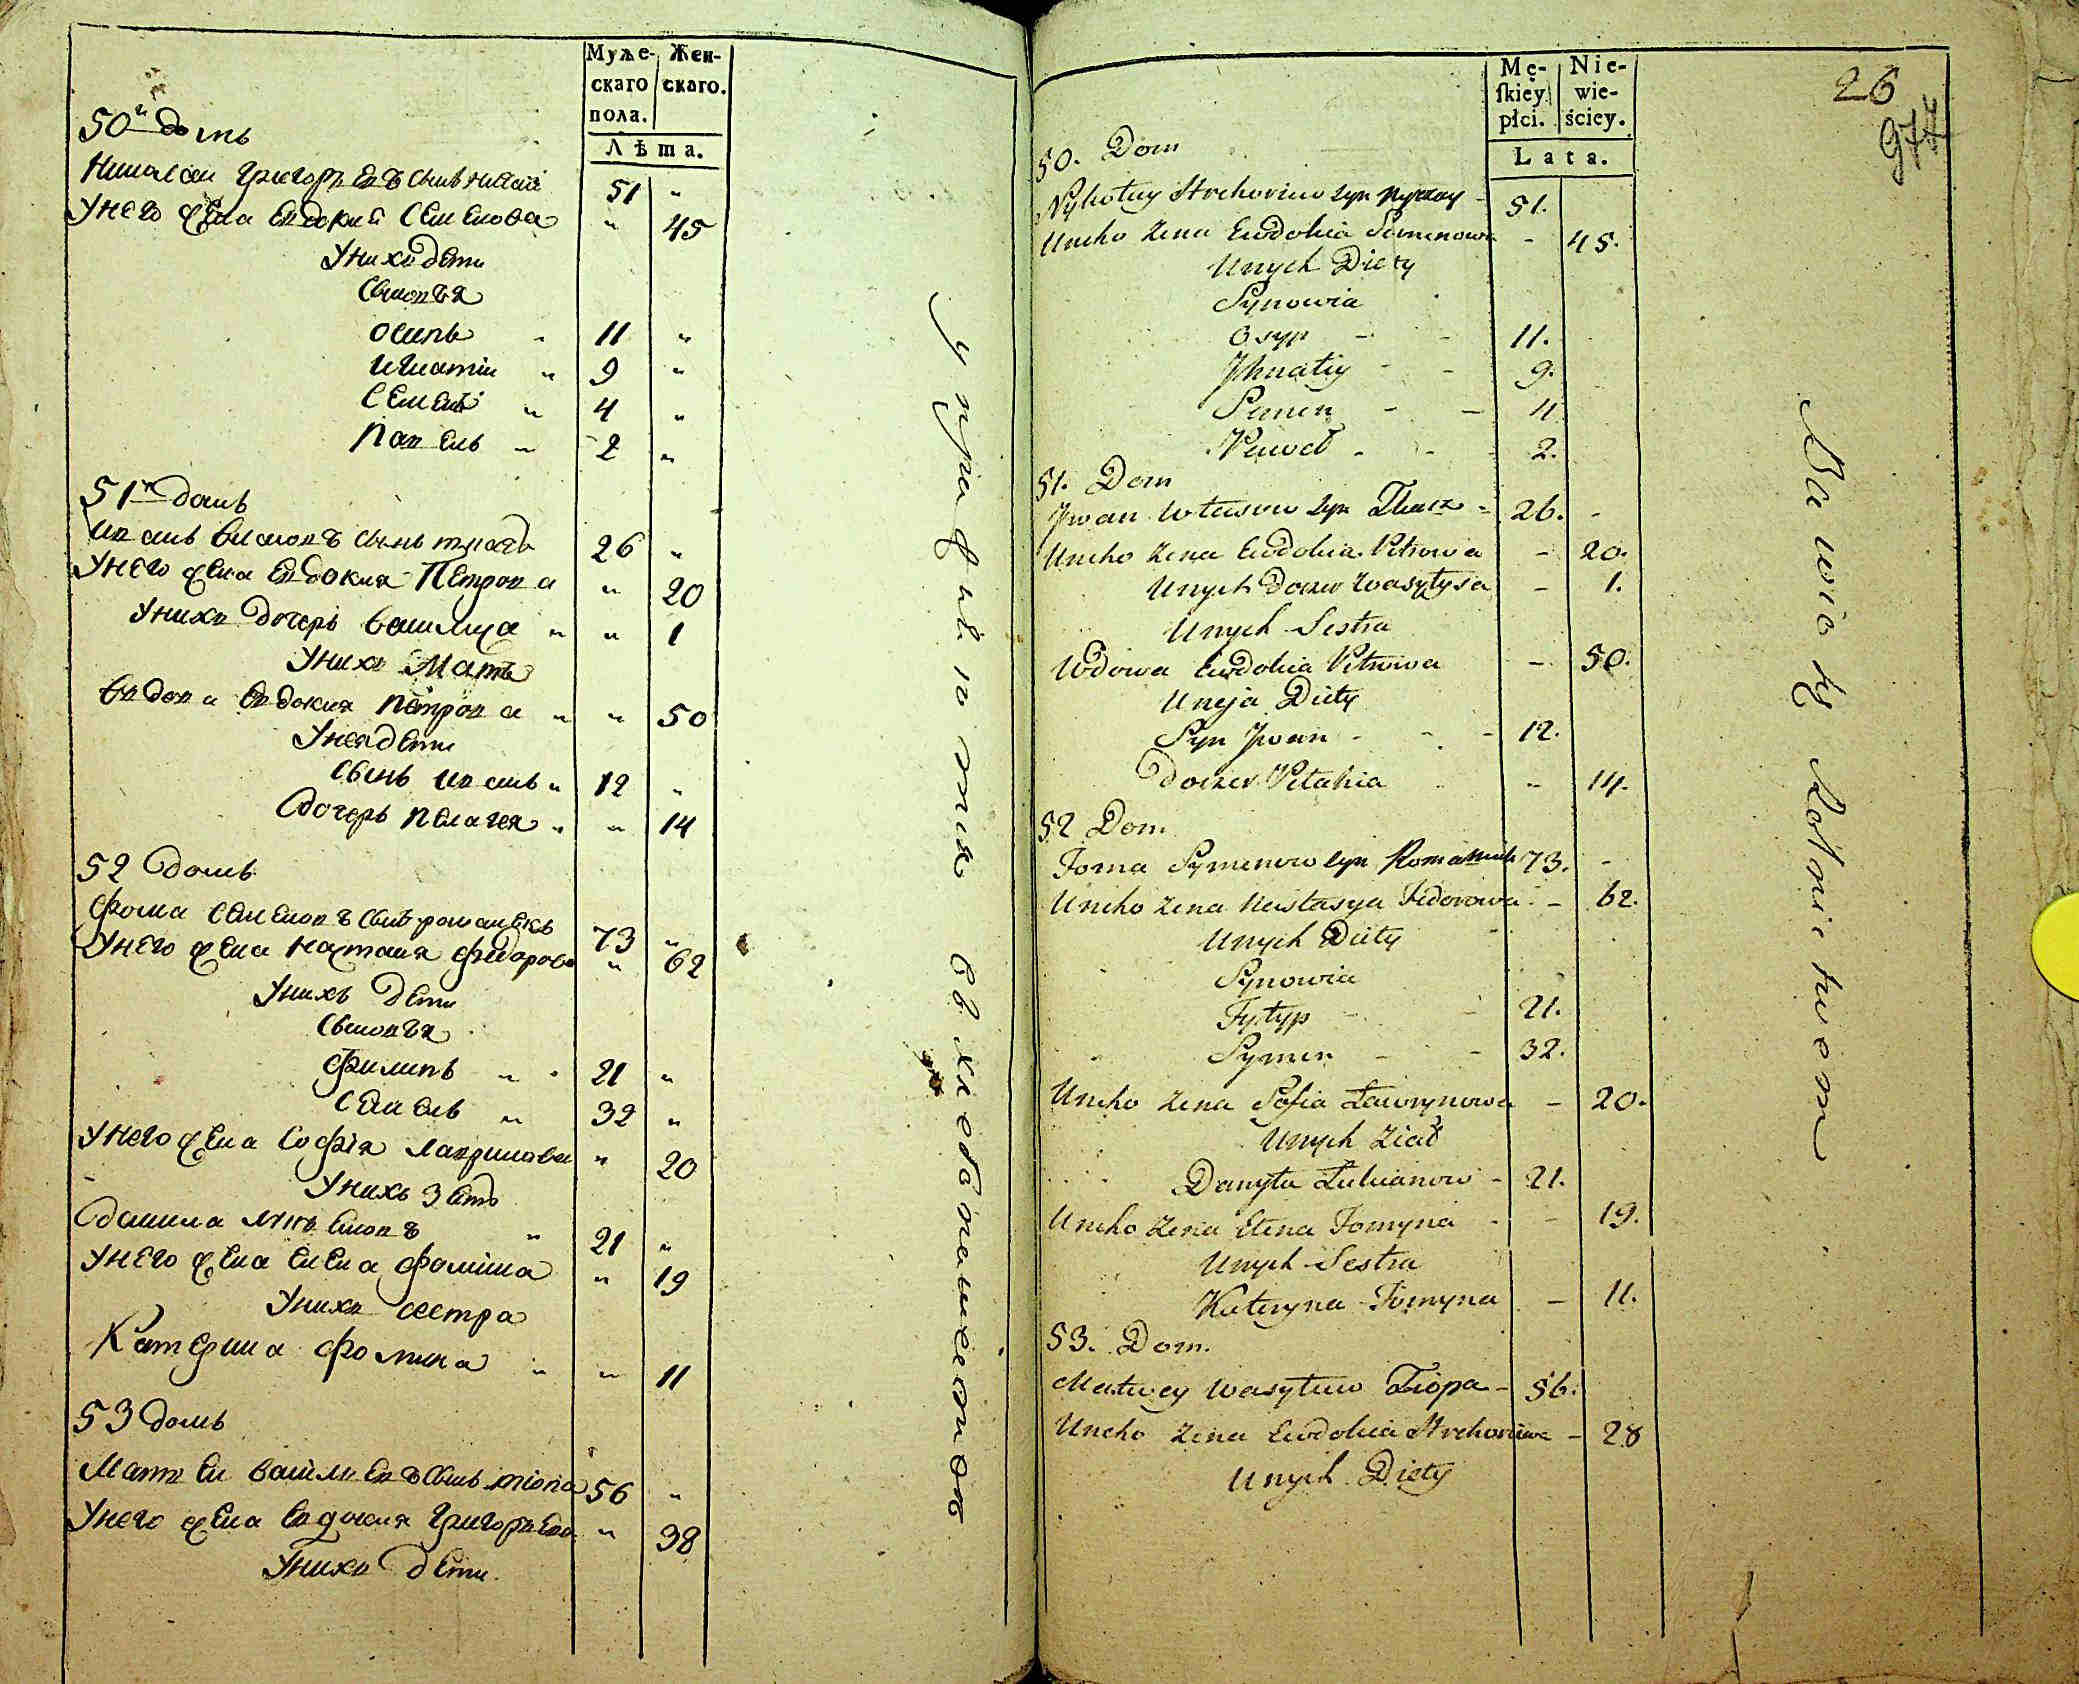 Муже- Жен-
скаго скаго.
пола.
Лѣта.
50й домъ
Николай Григорьевъ сынъ 51 "
У него жена Евдокия Семенова " 45
У нихъ дети
Сыновья
Осипъ " 11 "
Игнатий " 9 "
Семенъ " 4 "
Павелъ " 2 "
51й домъ
Иванъ Власовъ сынъ ткачъ 26 "
У него жена Евдокия Петрова " 20
У нихъ дочерь Василиса " " 1
У нихъ Мать
Вдова Евдокия Петрова " " 50
У нея дети
Сынъ Иванъ " 12 "
Дочерь Пелагея " " 14
52 домъ
Фома Семеновъ сынъ 73 "
У него жена Настасия Федорова " 62
У нихъ дети
Сыновья
Филипъ " " 21 "
Семенъ " 32 "
У него жена София Лавринова " 20
У нихъ Зять
Данила " 21 "
У него жена Елена Фомина " 19
У нихъ сестра
Катерина Фомина " " 11
53 домъ
Матвей Васильевъ сынъ тіопа 56 "
У него жена Евдокия Григорьева " 38
У нихъ дети
упражняются в хлебопашестве
Mę- Nie-
skiey wie-
płci. ściey.
Lata.
26
977
50. Dom
Nykołay Hrehoriew syn 51.
Uneho Zena Ewdokia Semenowa - 45.
Unych Diety
Synowia
Osyp - - 11.
Jhnatiy - - 9.
Semen - - 4
Paweł - - 2.
51. Dom
Jwan Własow syn Tkacz - 26. -
Uneho Zena Ewdokia Petrowa - 20.
Unych Doczer Wasyłysa - 1.
Unych Sestra
Wdowa Ewdokia Petrowa - 50.
Uneja Diety
Syn Jwan - - - 12.
Doczer Pełahia - 14.
52 Dom
Foma Symenow syn 73. -
Uneho Zena Nastasya Fedorowa - 62.
Unych Diety
Synowia
Fyłyp - - 21.
Symen - - 32.
Uneho Zena Sofia Ławrynowa - 20.
Unych Ziat
Danyła Łukianow - 21.
Uneho Zena Elena Fomyna - - 19.
Unych Sestra
Kateryna Fomyna - 11.
53. Dom.
Matwey Wasylew Tiopa - 56.
Uneho Zena Ewdokia Hrehoriewa - 28
Unych Diety
Bawią się Rolnictwem